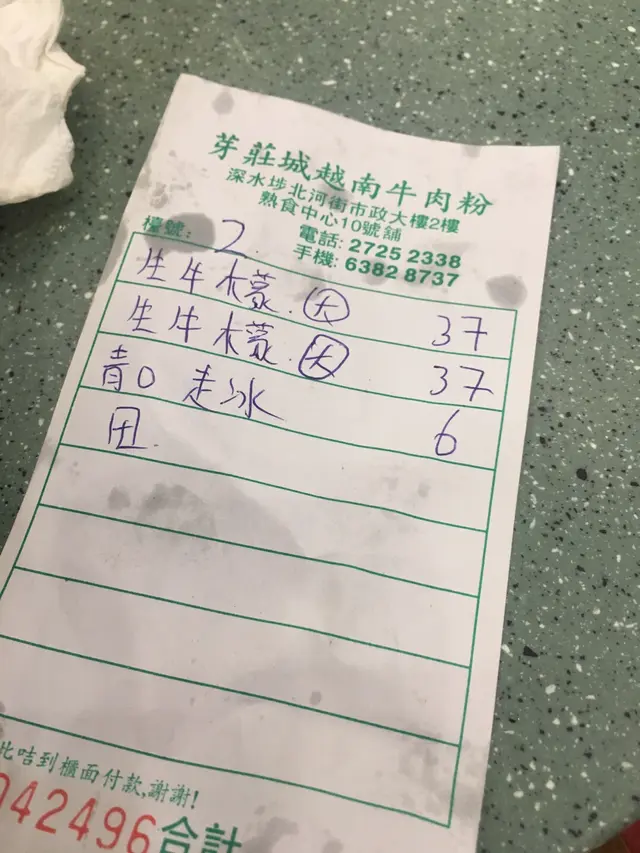 芽莊城越南牛肉粉
深水埗北河街市政大樓2樓
熟食中心10號舖
電話: 2725 2338
手機: 6382 8737
檯號: 2
生牛檬.大 37
生牛檬.大 37
青口 走冰 6
田.
此咭到櫃面付款,謝謝!
042496 合計